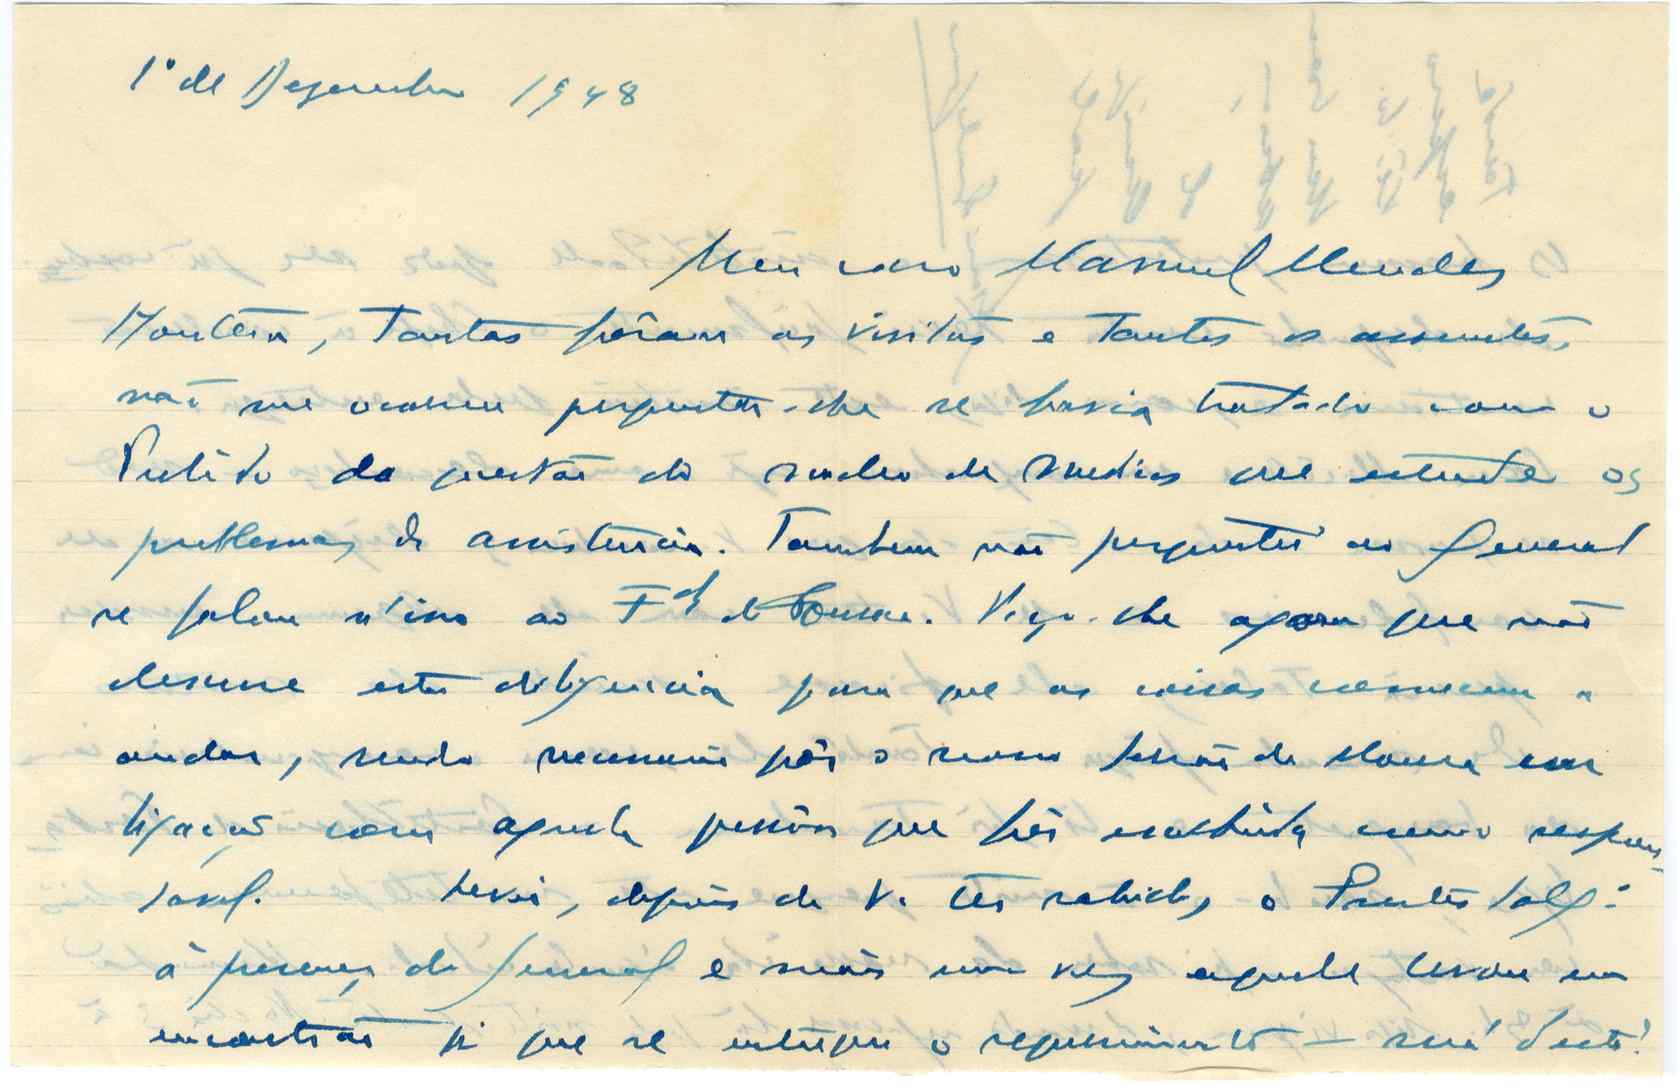 1º de Dezembro 1948
Meu caro Manuel Mendes
Hontem, Tantas foram as visitas e tantos os assuntos,
não me ocorreu perguntar-lhe se havia tratado com o
Partido da questão do nucleo de medicos que estude os
problemas de assistencia. Tambem não perguntei ao General
se falou n'isso ao F. de Moura. Peço-lhe agora que não
descure esta diligencia para que as coisas comecem a
andar, sendo necessario pôr o nosso de Moura em
ligação com aquela pessoa que fôr escolhida como respon-
savel. Levei, depois de V. ter sahido, o
á presença do General e mais uma vez aquele levou um
encontrão p. que se entregue o requerimento — será desta?